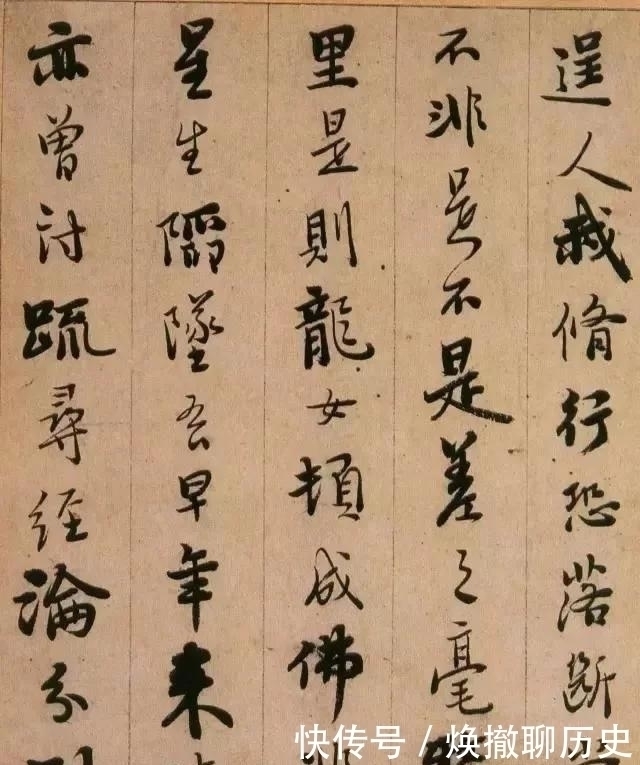 逞人我脩行恐落斷
不非是不是差之毫
里是則龍女頓成佛
星生陷墜吾早年來
亦曾討疏尋經論分
快传号 / 焕撤聊历史